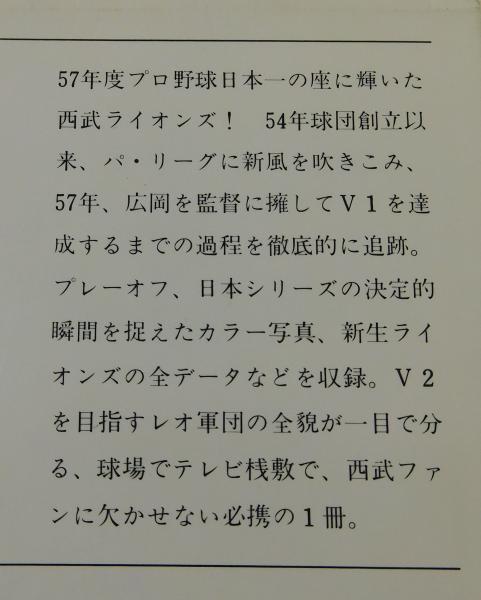 57年度プロ野球日本一の座に輝いた
西武ライオンズ！　54年球団創立以
来、パ・リーグに新風を吹きこみ、
57年、広岡を監督に擁してＶ１を達
成するまでの過程を徹底的に追跡。
プレーオフ、日本シリーズの決定的
瞬間を捉えたカラー写真、新生ライ
オンズの全データなどを収録。Ｖ２
を目指すレオ軍団の全貌が一目で分
る、球場でテレビ桟敷で、西武ファ
ンに欠かせない必携の１冊。